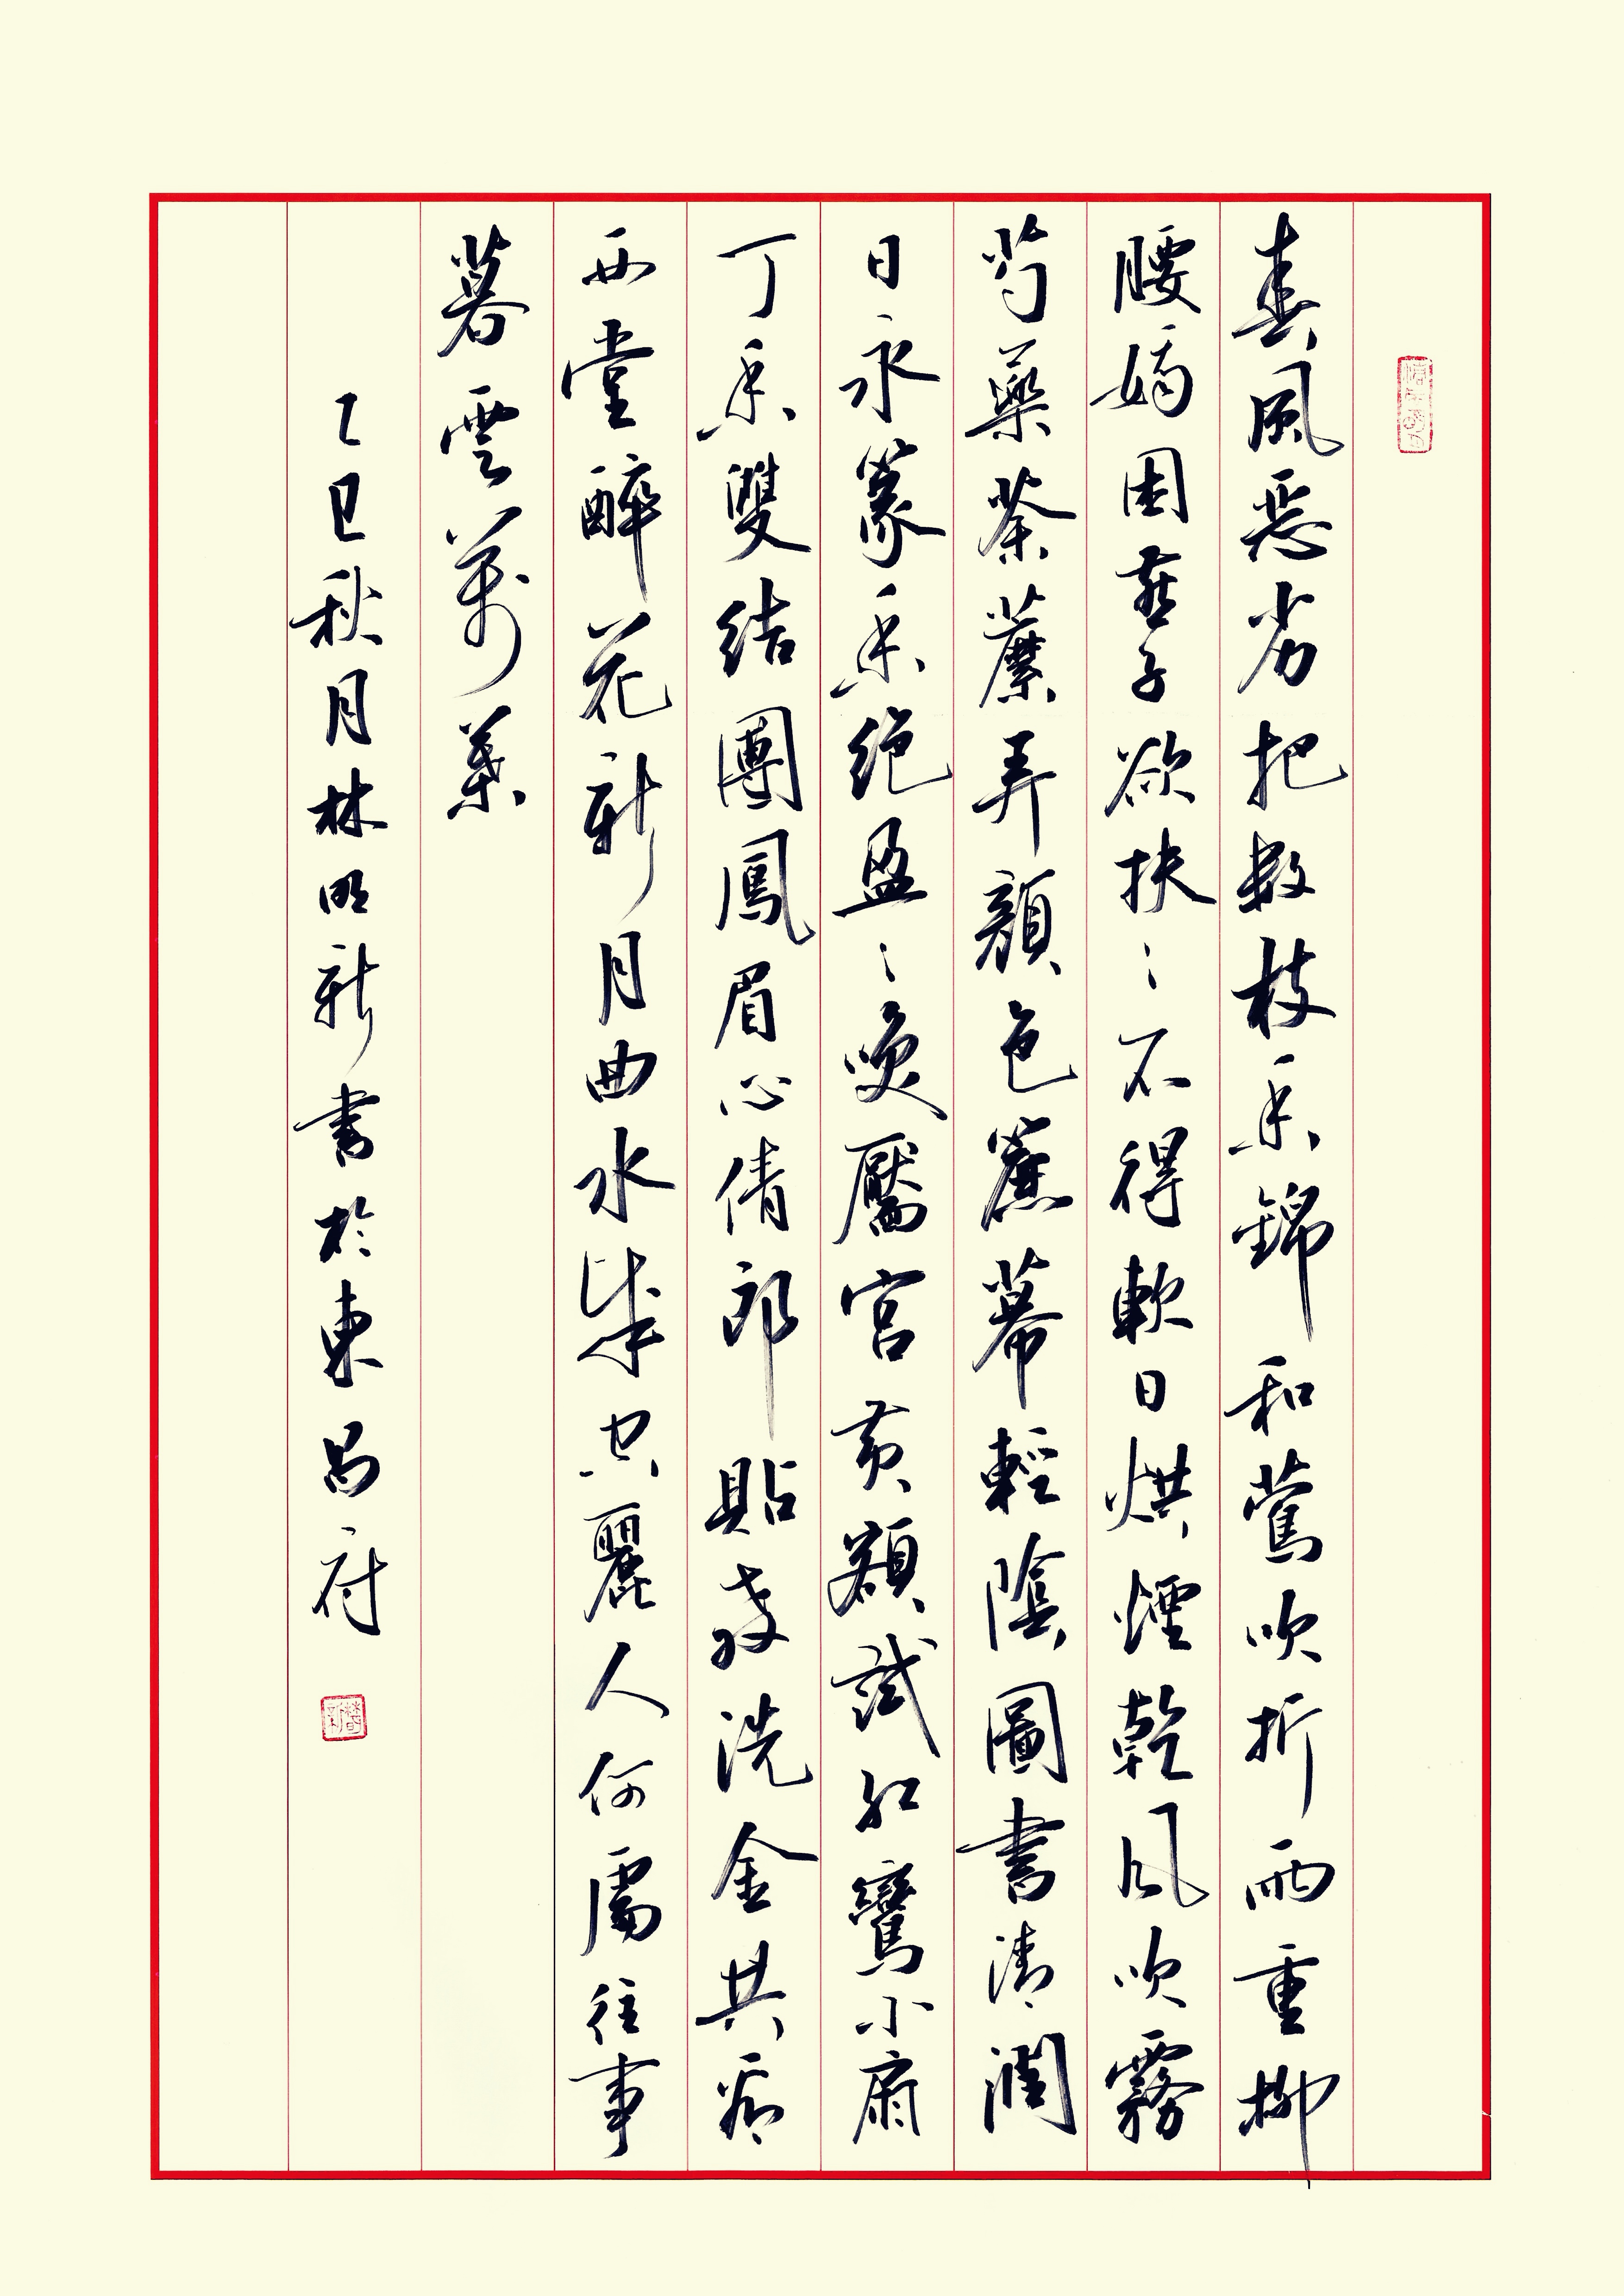 春風惡劣把數枝香錦和鶯吹折雨重柳
腰嬌困燕子欲扶〻不得軟日烘煙乾風吹霧
芍藥荼蘼弄顏色簾幕輕陰圖書清潤
日永篆香絕盈〻咲靨宮黃額試紅鸞小扇
丁香雙結團鳳眉心倩郎貼教洗金共看
西堂醉花新月曲水成空麗人何處往事
暮雲萬葉
乙巳秋月林明新書於東昌府